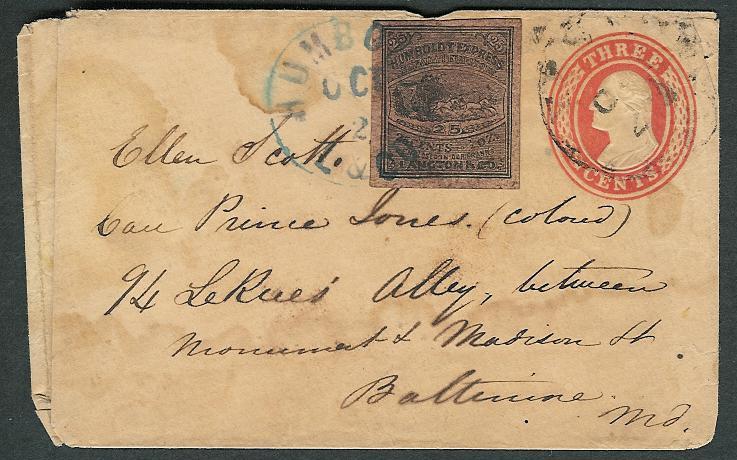 HUMBO
OCT
2
L & CO
25 25
HUMBOLDT EXPRESS
25
CENTS ½ OZ.
LANGTON & CO.
THREE
CENTS
Ellen Scott.
Care Prince Jones. (colored)
94 LeRues' Alley, between
Monument & Madison St
Baltimore
Md.